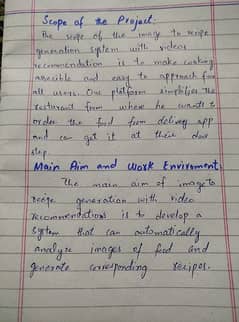 Scope of the Project:
The scope of the image to recipe
generation system with video
recommendation is to make cooking
accessible and easy to approach for
all users. Our platform simplifies the
resturant from where he wants to
order the food from delivery app
and can get it at their door
step.
Main Aim and Work Enviroment
The main aim of image To
recipe generation with video
recommendations is to develop a
system that can automatically
analyze images of food and
generate corresponding recipes.